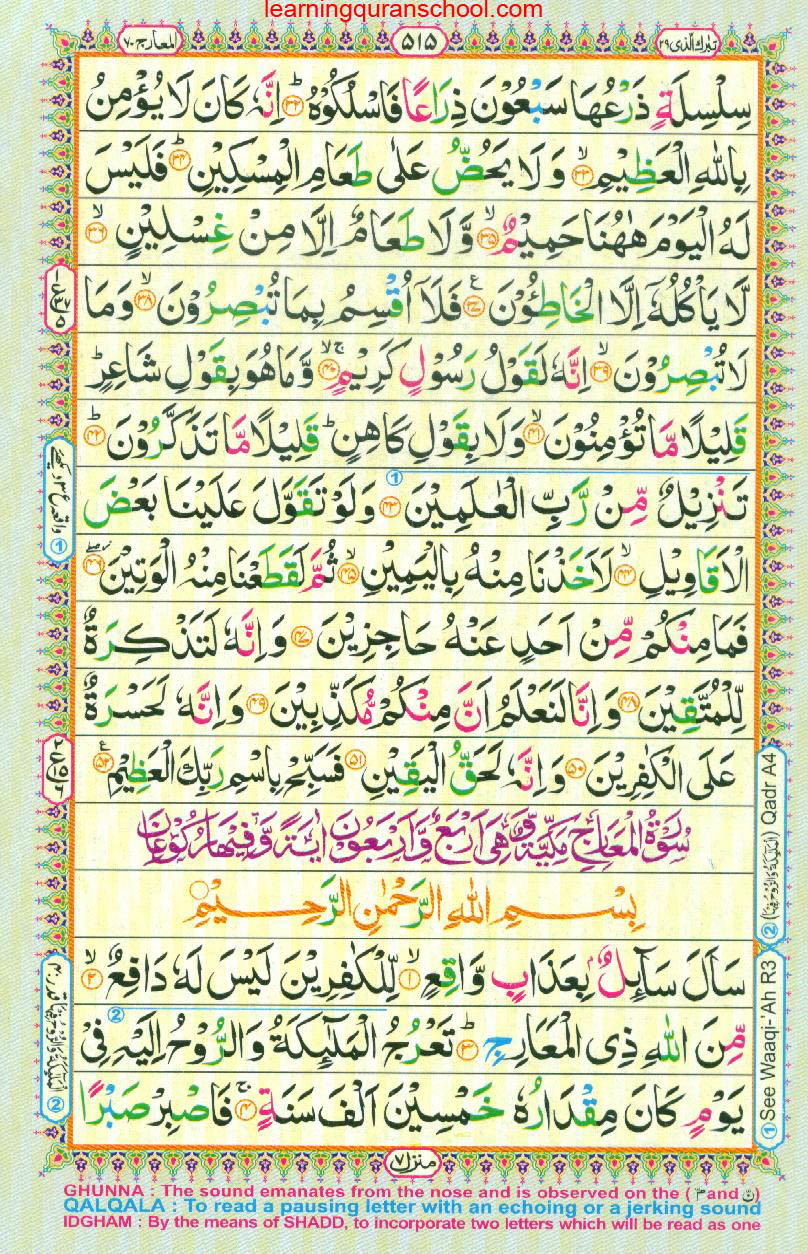 learningquranschool.com
تبٰرك الذی ۲۹
۵۱۵
المعارج ۷۰
سِلْسِلَةٍ ذَرْعُهَا سَبْعُوْنَ ذِرَاعًا فَاسْلُكُوْهُ ؕ﴿۳۲﴾ اِنَّهٗ كَانَ لَا يُؤْمِنُ
بِاللّٰهِ الْعَظِيْمِ ۙ﴿۳۳﴾ وَ لَا يَحُضُّ عَلٰى طَعَامِ الْمِسْكِيْنِ ؕ﴿۳۴﴾ فَلَيْسَ
لَهُ الْيَوْمَ هٰهُنَا حَمِيْمٌ ۙ﴿۳۵﴾ وَّ لَا طَعَامٌ اِلَّا مِنْ غِسْلِيْنٍ ۙ﴿۳۶﴾
لَّا يَاْكُلُهٗۤ اِلَّا الْخَاطِـُٔوْنَ ۠﴿۳۷﴾ فَلَاۤ اُقْسِمُ بِمَا تُبْصِرُوْنَ ۙ﴿۳۸﴾ وَ مَا
لَا تُبْصِرُوْنَ ۙ﴿۳۹﴾ اِنَّهٗ لَقَوْلُ رَسُوْلٍ كَرِيْمٍ ۚۙ﴿۴۰﴾ وَّ مَا هُوَ بِقَوْلِ شَاعِرٍ ؕ
قَلِيْلًا مَّا تُؤْمِنُوْنَ ۙ﴿۴۱﴾ وَ لَا بِقَوْلِ كَاهِنٍ ؕ قَلِيْلًا مَّا تَذَكَّرُوْنَ ؕ﴿۴۲﴾
تَنْزِيْلٌ مِّنْ رَّبِّ الْعٰلَمِيْنَ ﴿۴۳﴾ وَ لَوْ تَقَوَّلَ عَلَيْنَا بَعْضَ
الْاَقَاوِيْلِ ۙ﴿۴۴﴾ لَاَخَذْنَا مِنْهُ بِالْيَمِيْنِ ۙ﴿۴۵﴾ ثُمَّ لَقَطَعْنَا مِنْهُ الْوَتِيْنَ ۖ﴿۴۶﴾
فَمَا مِنْكُمْ مِّنْ اَحَدٍ عَنْهُ حَاجِزِيْنَ ﴿۴۷﴾ وَ اِنَّهٗ لَتَذْكِرَةٌ
لِّلْمُتَّقِيْنَ ﴿۴۸﴾ وَ اِنَّا لَنَعْلَمُ اَنَّ مِنْكُمْ مُّكَذِّبِيْنَ ﴿۴۹﴾ وَ اِنَّهٗ لَحَسْرَةٌ
عَلَى الْكٰفِرِيْنَ ﴿۵۰﴾ وَ اِنَّهٗ لَحَقُّ الْيَقِيْنِ ﴿۵۱﴾ فَسَبِّحْ بِاسْمِ رَبِّكَ الْعَظِيْمِ ۠﴿۵۲﴾
سُوْرَةُ الْمَعَارِجِ مَكِّيَّةٌ وَّهِىَ اَرْبَعٌ وَّاَرْبَعُوْنَ اٰيَةً وَّفِيْهَا رُكُوْعَانِ
بِسْمِ اللّٰهِ الرَّحْمٰنِ الرَّحِيْمِ
سَاَلَ سَآئِلٌۢ بِعَذَابٍ وَّاقِعٍ ۙ﴿۱﴾ لِّلْكٰفِرِيْنَ لَيْسَ لَهٗ دَافِعٌ ۙ﴿۲﴾
مِّنَ اللّٰهِ ذِى الْمَعَارِجِ ؕ﴿۳﴾ تَعْرُجُ الْمَلٰٓئِكَةُ وَ الرُّوْحُ اِلَيْهِ فِىْ
يَوْمٍ كَانَ مِقْدَارُهٗ خَمْسِيْنَ اَلْفَ سَنَةٍ ۚ﴿۴﴾ فَاصْبِرْ صَبْرًا
منزل ۷
① See Waaqi-'Ah R3
② (الملٰئكة والروح فيها) Qadr A4
GHUNNA : The sound emanates from the nose and is observed on the (مّ and نّ)
QALQALA : To read a pausing letter with an echoing or a jerking sound
IDGHAM : By the means of SHADD, to incorporate two letters which will be read as one